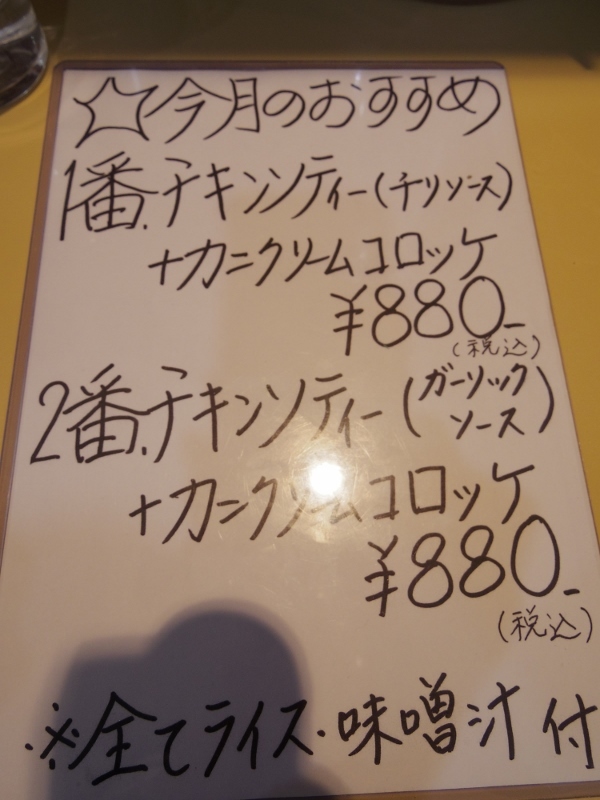 ☆今月のおすすめ
1番.チキンソティー(チリソース)
+カニクリームコロッケ
¥880-
(税込)
2番.チキンソティー(ガーリックソース)
+カニクリームコロッケ
¥880-
(税込)
※全てライス・味噌汁付